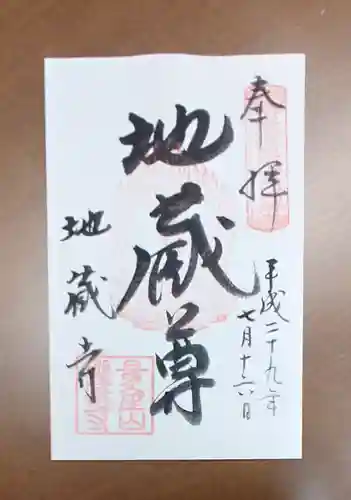 奉拝
平成二十九年
七月十六日
地蔵尊
地蔵寺